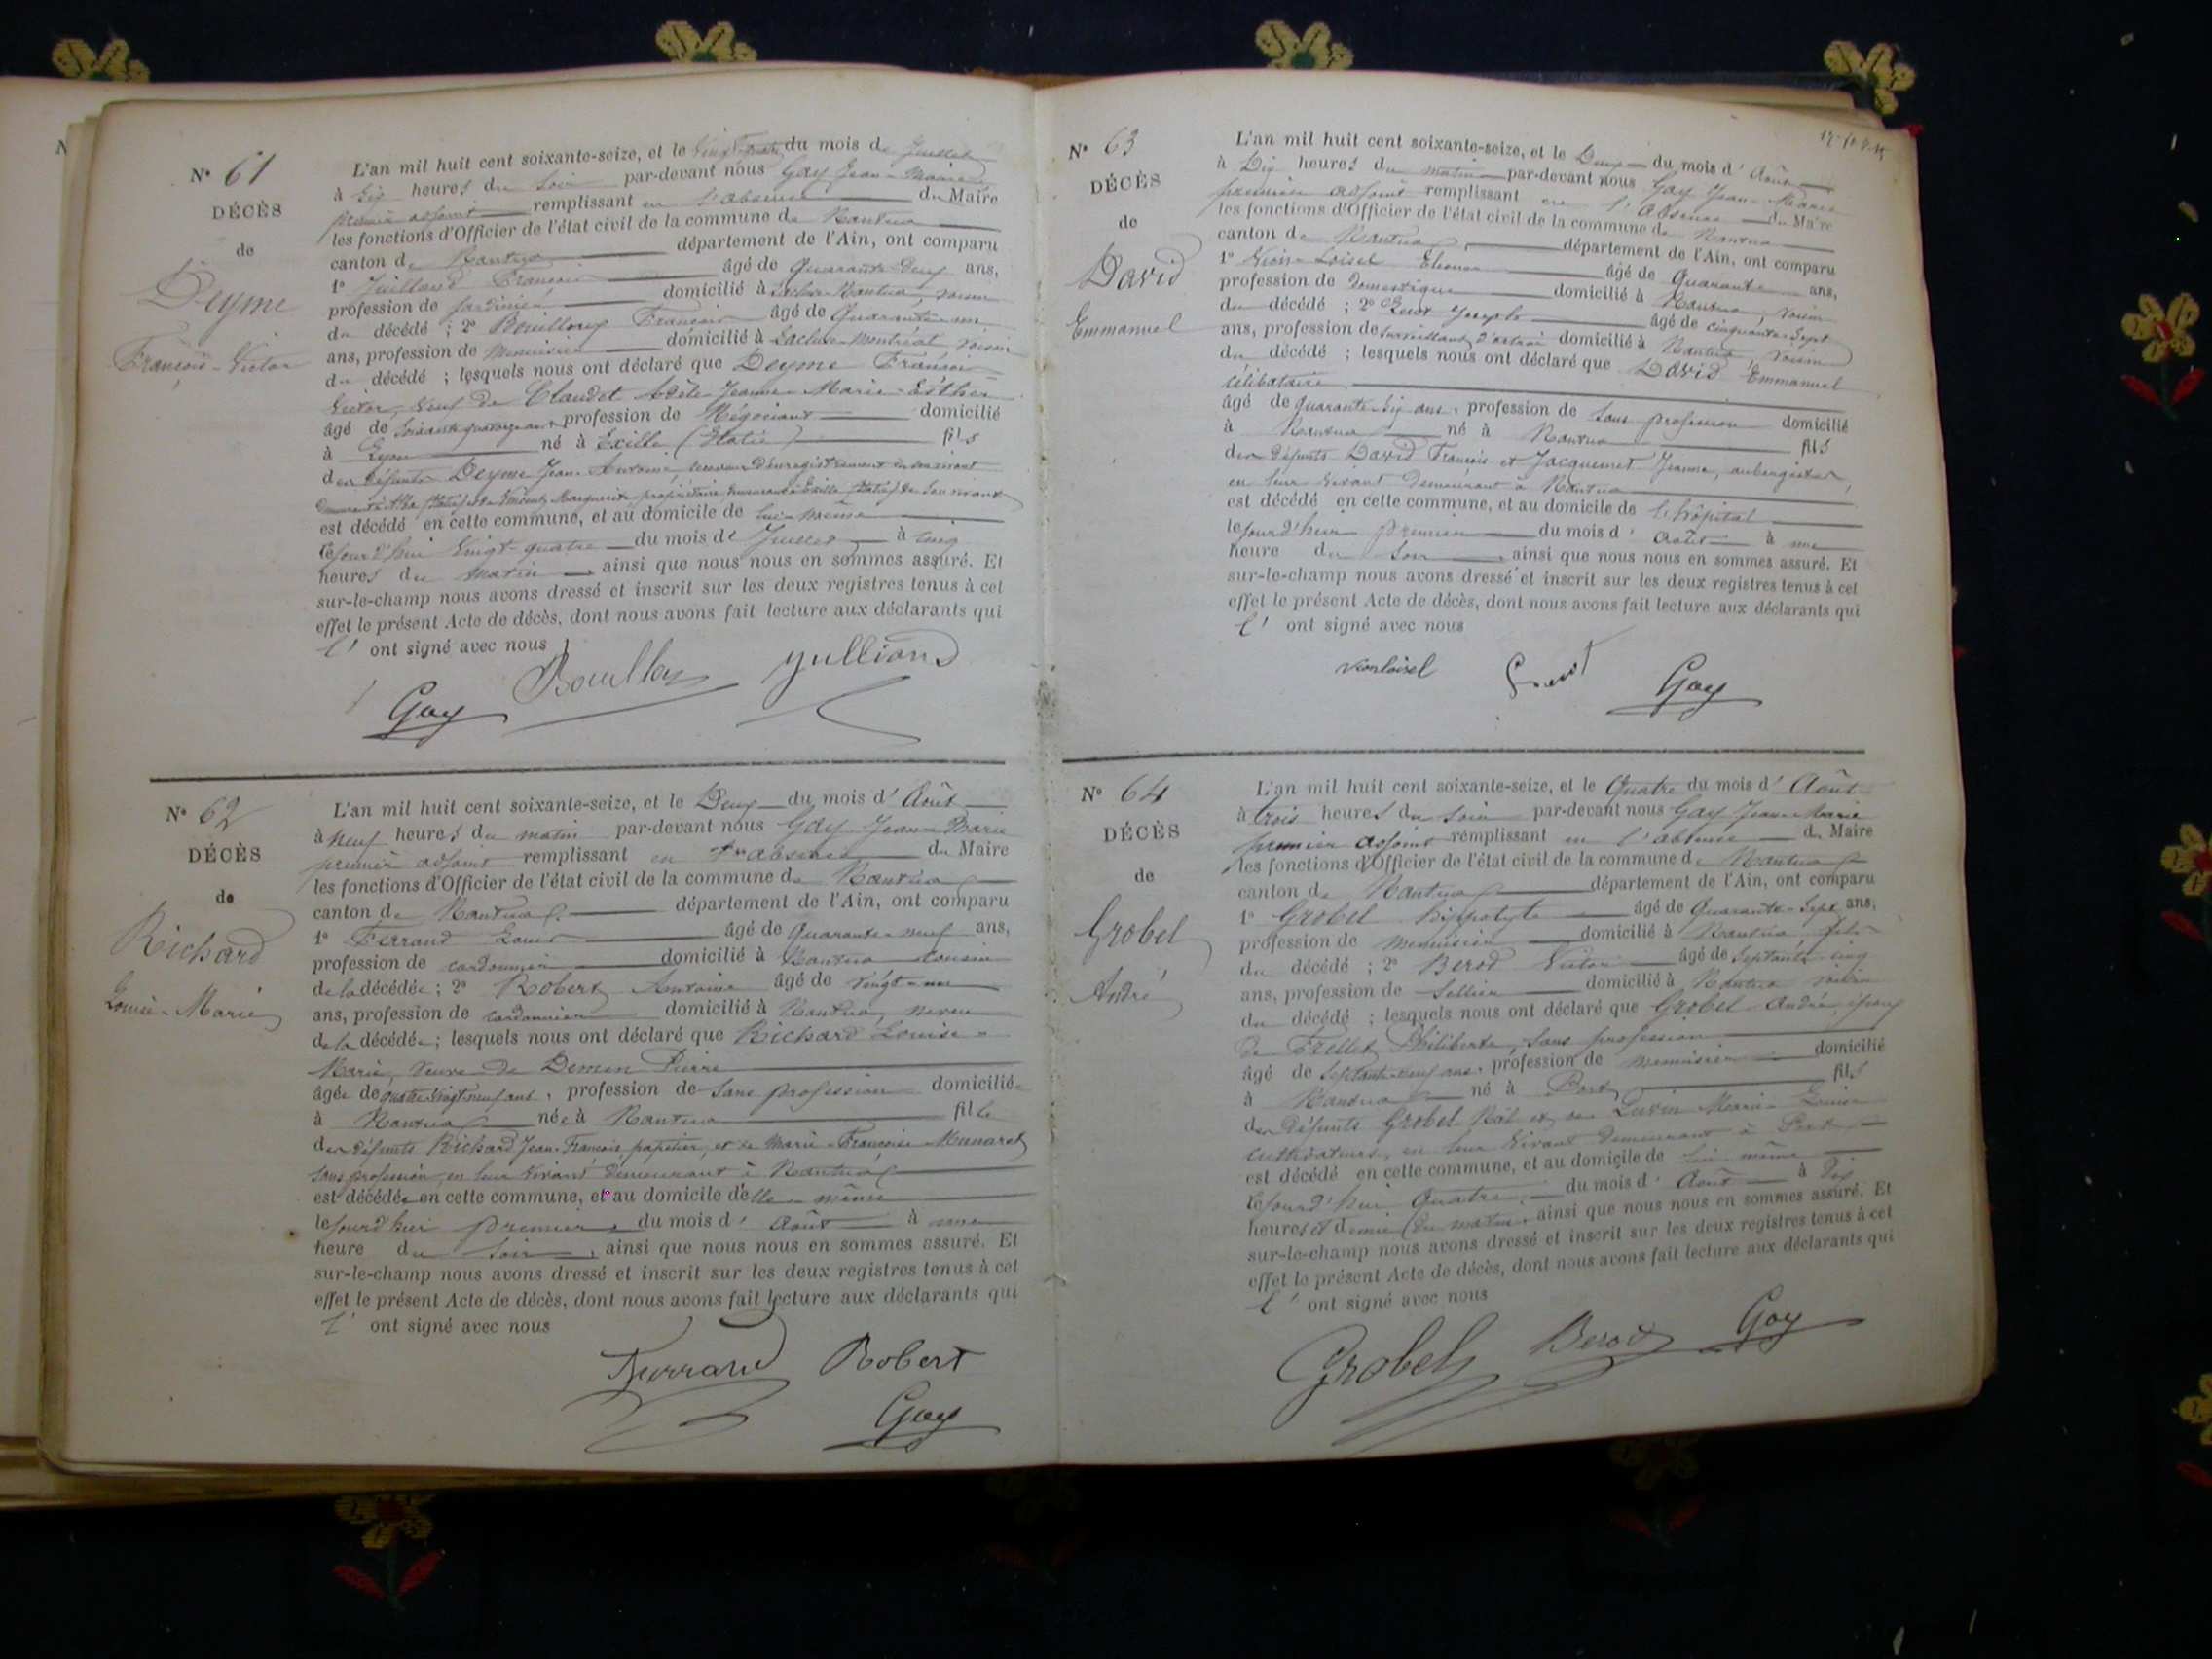 N° 61
DÉCÈS
de
Deyme
François-Victor
L'an mil huit cent soixante-seize, et le Vingt-quatre du mois de Juillet
à Six heures du Soir par-devant nous Gay Jean-Marie
premier adjoint remplissant en l'absence du Maire
les fonctions d'Officier de l'état civil de la commune de Nantua
canton de Nantua département de l'Ain, ont comparu
1° Juilland François âgé de Quarante-deux ans,
profession de Jardinier domicilié à Nantua, voisin
du décédé ; 2° Bouilloux François âgé de Quarante-un
ans, profession de Menuisier domicilié à Montréal voisin
du décédé ; lesquels nous ont déclaré que Deyme François
Victor, Veuf de Claudet Adèle-Jeanne-Marie-Esther
âgé de Soixante-quatorze ans, profession de Négociant domicilié
à Lyon né à Exille (Italie) fils
des défunts Deyme Jean-Antoine, receveur d'enregistrement en son vivant
Marguerite propriétaire demeurant à Exille (Italie) de Son vivant
est décédé en cette commune, et au domicile de lui-même
cejourd'hui Vingt-quatre du mois de Juillet à cinq
heures du matin, ainsi que nous nous en sommes assuré. Et
sur-le-champ nous avons dressé et inscrit sur les deux registres tenus à cet
effet le présent Acte de décès, dont nous avons fait lecture aux déclarants qui
l' ont signé avec nous
Gay
N° 62
DÉCÈS
de
Richard
Louise-Marie
L'an mil huit cent soixante-seize, et le Deux du mois d' Août
à Neuf heures du matin par-devant nous Gay Jean-Marie
premier adjoint remplissant en l'absence du Maire
les fonctions d'Officier de l'état civil de la commune de Nantua
canton de Nantua département de l'Ain, ont comparu
1° Ferrand Louis âgé de Quarante-neuf ans,
profession de cordonnier domicilié à Nantua cousin
de la décédée ; 2° Robert Antoine âgé de vingt-un
ans, profession de cordonnier domicilié à Nantua, neveu
de la décédée ; lesquels nous ont déclaré que Richard Louise-
Marie, Veuve de Demen Pierre
âgée de quatre-Vingt neuf ans, profession de Sans profession domiciliée
à Nantua née à Nantua fille
des défunts Richard Jean-François, papetier, et de Marie-Françoise Munaret
Sans profession, en leur Vivant demeurant à Nantua
est décédée en cette commune, et au domicile d'elle-même
lejourd'hui premier du mois d' Août à une
heure du Soir, ainsi que nous nous en sommes assuré. Et
sur-le-champ nous avons dressé et inscrit sur les deux registres tenus à cet
effet le présent Acte de décès, dont nous avons fait lecture aux déclarants qui
l' ont signé avec nous
Ferrand Robert
Gay
N° 63
DÉCÈS
de
David
Emmanuel
L'an mil huit cent soixante-seize, et le Deux du mois d' Août
à Dix heures du matin par-devant nous Gay Jean-Marie
premier adjoint remplissant en l'absence du Maire
les fonctions d'Officier de l'état civil de la commune de Nantua
canton de Nantua département de l'Ain, ont comparu
1° Vion-Loisel Eléonor âgé de Quarante ans,
profession de Domestique domicilié à Nantua, voisin
du décédé ; 2° Joseph âgé de cinquante-sept
ans, profession de Surveillant d'octroi domicilié à Nantua, voisin
du décédé ; lesquels nous ont déclaré que David Emmanuel
célibataire
âgé de quarante-Six ans, profession de Sans profession domicilié
à Nantua né à Nantua fils
des défunts David François et Jacquemet Jeanne, aubergistes,
en leur Vivant demeurant à Nantua
est décédé en cette commune, et au domicile de l'hôpital
lejourd'hui premier du mois d' août à une
heure du Soir, ainsi que nous nous en sommes assuré. Et
sur-le-champ nous avons dressé et inscrit sur les deux registres tenus à cet
effet le présent Acte de décès, dont nous avons fait lecture aux déclarants qui
l' ont signé avec nous
vionloisel Gay
N° 64
DÉCÈS
de
Grobel
André
L'an mil huit cent soixante-seize, et le Quatre du mois d' Août
à trois heures du Soir par-devant nous Gay Jean-Marie
premier adjoint remplissant en l'absence du Maire
les fonctions d'Officier de l'état civil de la commune de Nantua
canton de Nantua département de l'Ain, ont comparu
1° Grobel Hippolyte âgé de Quarante-Sept ans,
profession de menuisier domicilié à Nantua fils
du décédé ; 2° Berod Victor âgé de Septante cinq
ans, profession de Sellier domicilié à Nantua voisin
du décédé ; lesquels nous ont déclaré que Grobel André, époux
de Frellet Philiberte, Sans profession
âgé de Septante-neuf ans, profession de menuisier domicilié
à Nantua né à Port fils
des Défunts Grobel et de Marie-Louise
cultivateurs, en leur Vivant demeurant à Port
est décédé en cette commune, et au domicile de lui-même
cejourd'hui Quatre du mois d' Août à Dix
heures et demie du matin, ainsi que nous nous en sommes assuré. Et
sur-le-champ nous avons dressé et inscrit sur les deux registres tenus à cet
effet le présent Acte de décès, dont nous avons fait lecture aux déclarants qui
l' ont signé avec nous
Grobel Berod Gay